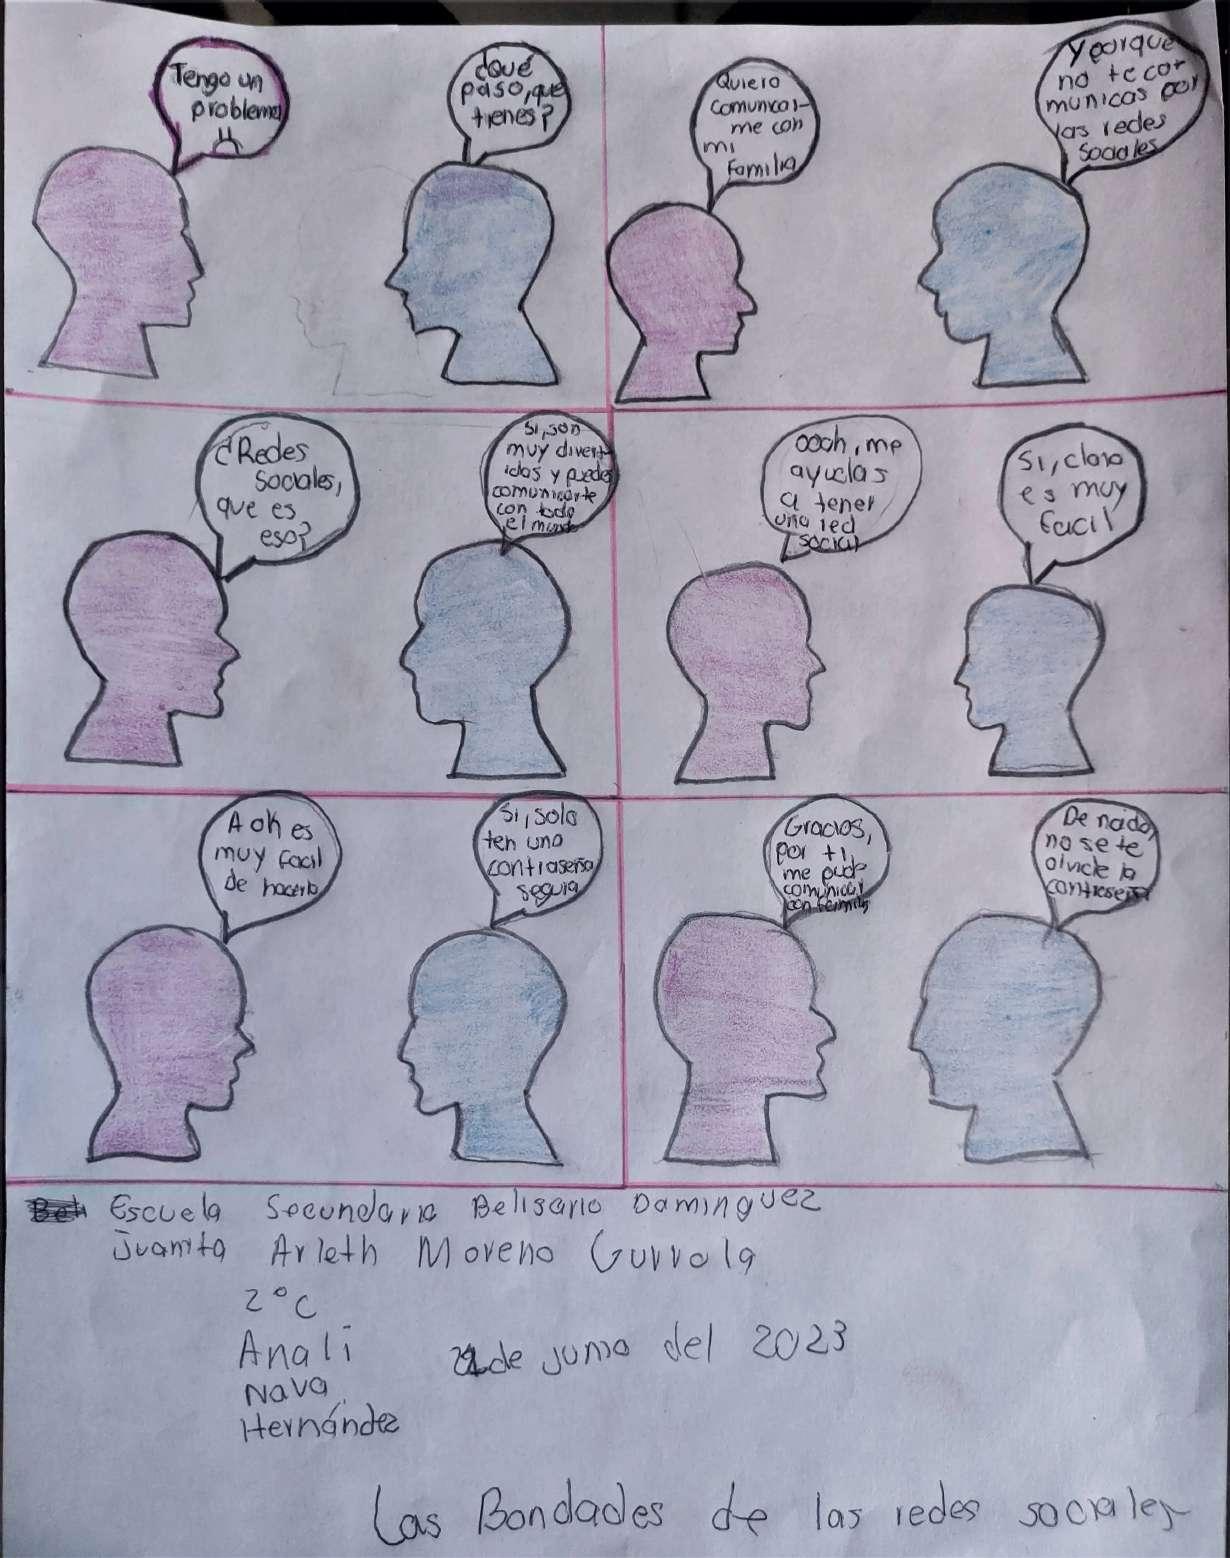 Tengo un
problema
¿Qué
paso, que
tienes?
Quiero
comunicar-
me con
mi
familia
Y porque
no te co
municas por
las redes
sociales
¿Redes
sociales,
que es
eso?
Si, son
muy divert
idas y puedes
comunicarte
con todo
el mundo
oooh, me
ayudas
a tener
una red
social
Si, claro
es muy
facil
A ok es
muy facil
de hacerlo
Si, solo
ten una
contraseña
segura
Gracias,
por ti
me pude
comunicar
con familia
De nada,
no se te
olvide la
contraseña
Escuela Secundaria Belisario Dominguez
Juanita Arleth Moreno Gurrola
2°C
Anali
Nava
Hernández
de junio del 2023
Las Bondades de las redes sociales